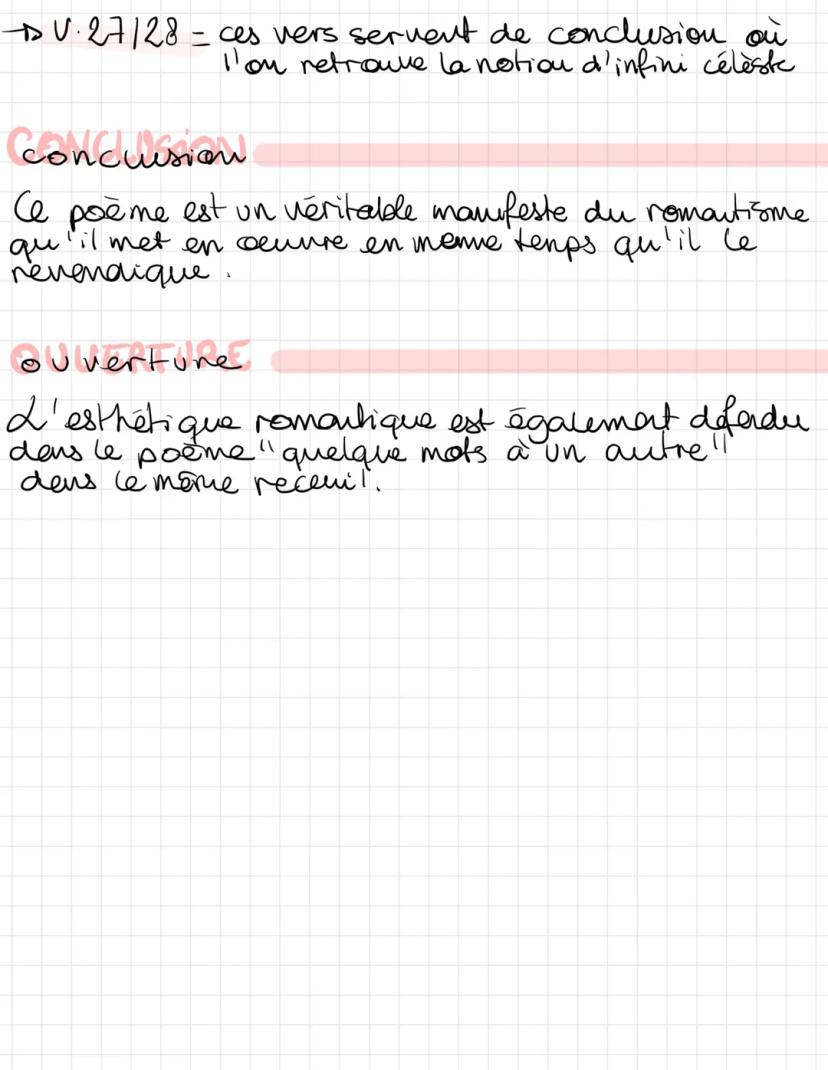 → V.27/28 = ces vers servent de conclusion où
l'on retrouve la notion d'infini célèste
CONCLUSION
conclusion
Ce poème est un véritable manifeste du romantisme
qu'il met en oeuvre en même temps qu'il le
revendique.
OUVERTURE
ouverture
L'esthétique romantique est également défendu
dans le poème "quelque mots à un autre"
dans le même receuil.